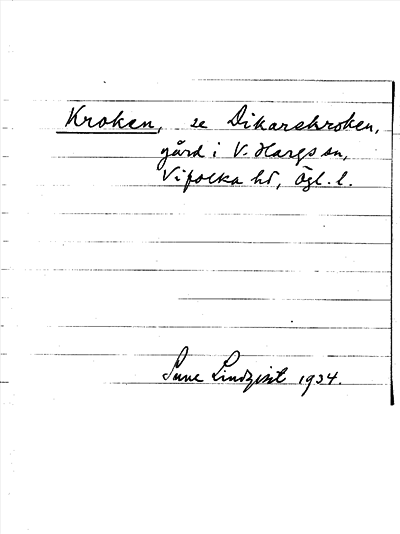 Kroken, se Dikarekroken,
gård i V. Hargs sn,
Vifolka hd, Ögl. l.
Sune Lindqvist 1934.